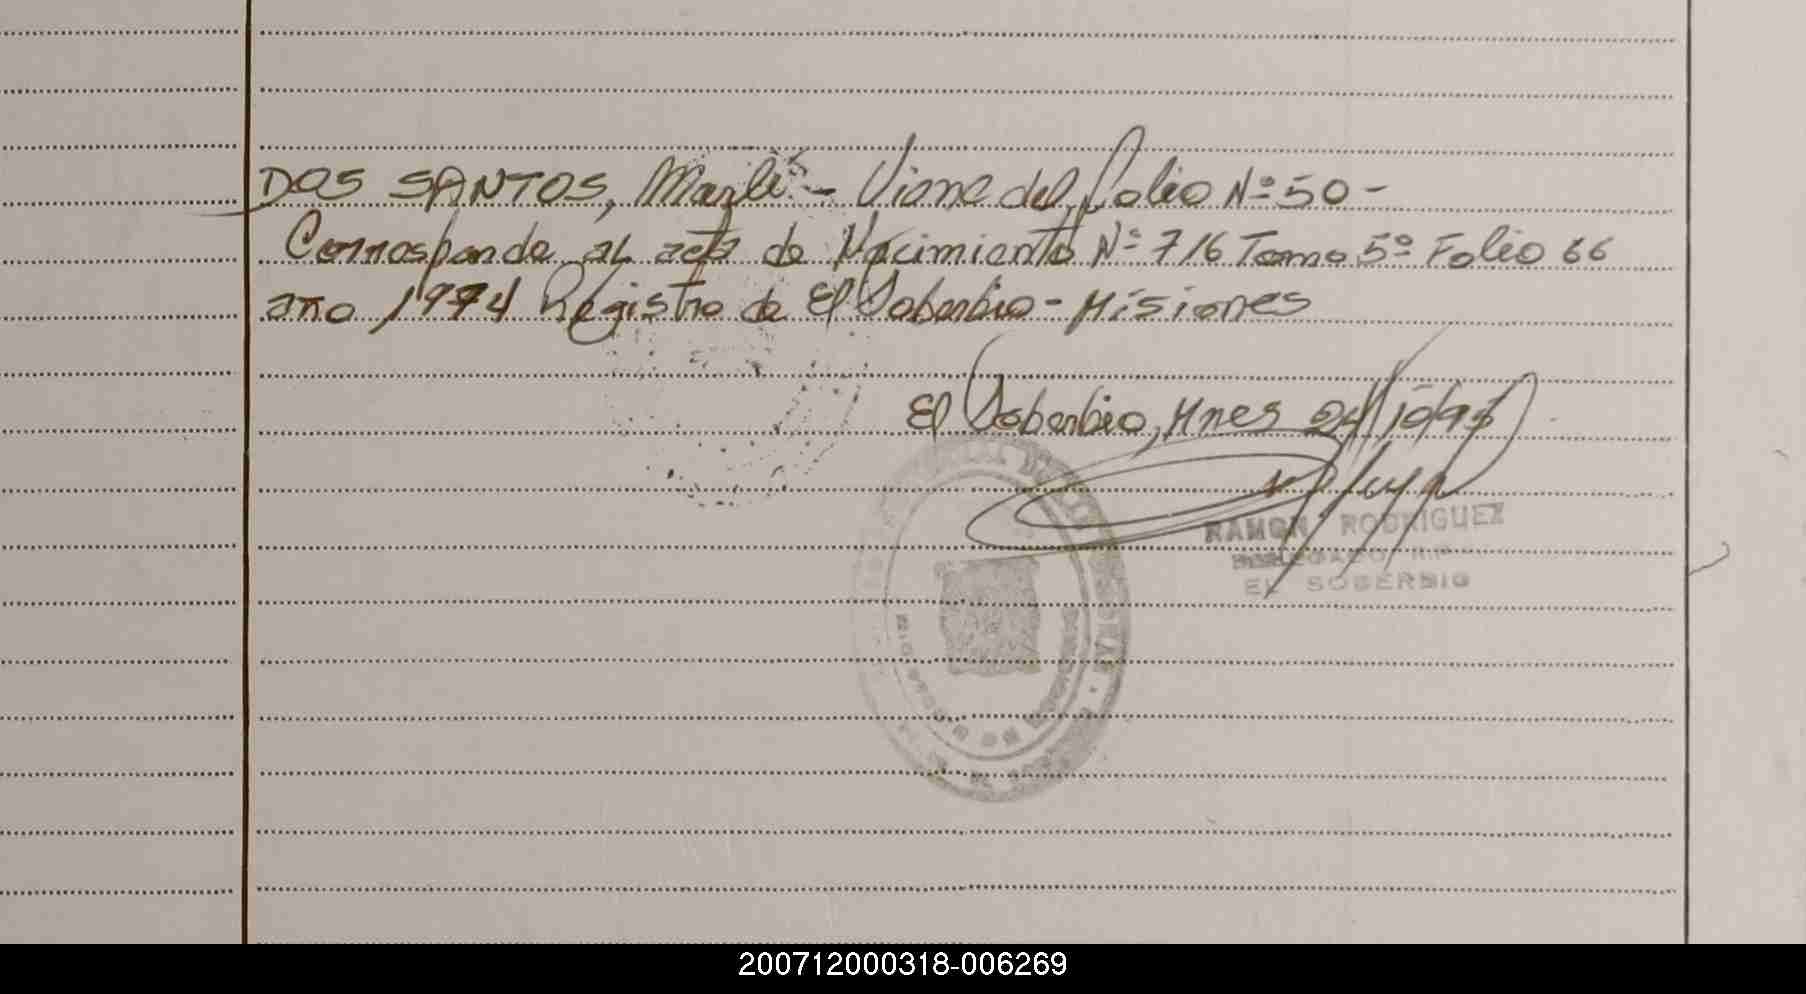 DOS SANTOS, Marli - Viene del folio Nº 50 -
Corresponde al acta de Nacimiento Nº 716 Tomo 5º Folio 66
año 1974 Registro de El Soberbio - Misiones
El Soberbio, Mnes 24/10/95
RAMON RODRIGUEZ
DELEGADO
EL SOBERBIO
200712000318-006269